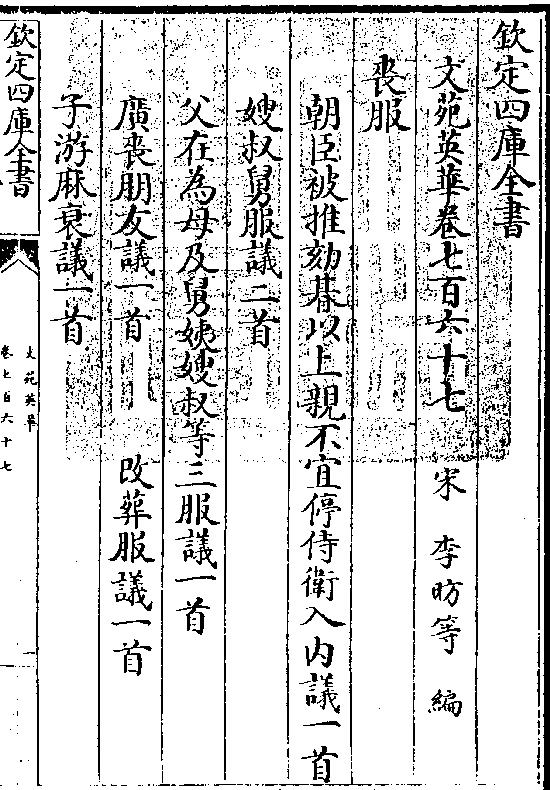 欽定四庫全書
文苑英華卷七百六十七 宋 李昉等 編
喪服
朝臣被推劾朞以上親不宜停侍衛入内議一首
嫂叔舅服議二首
父在為母及舅姨嫂叔等三服議一首
廣喪朋友議一首 改葬服議一首
子游麻衰議一首
欽定四庫全書
文苑英華
卷七百六十七
一